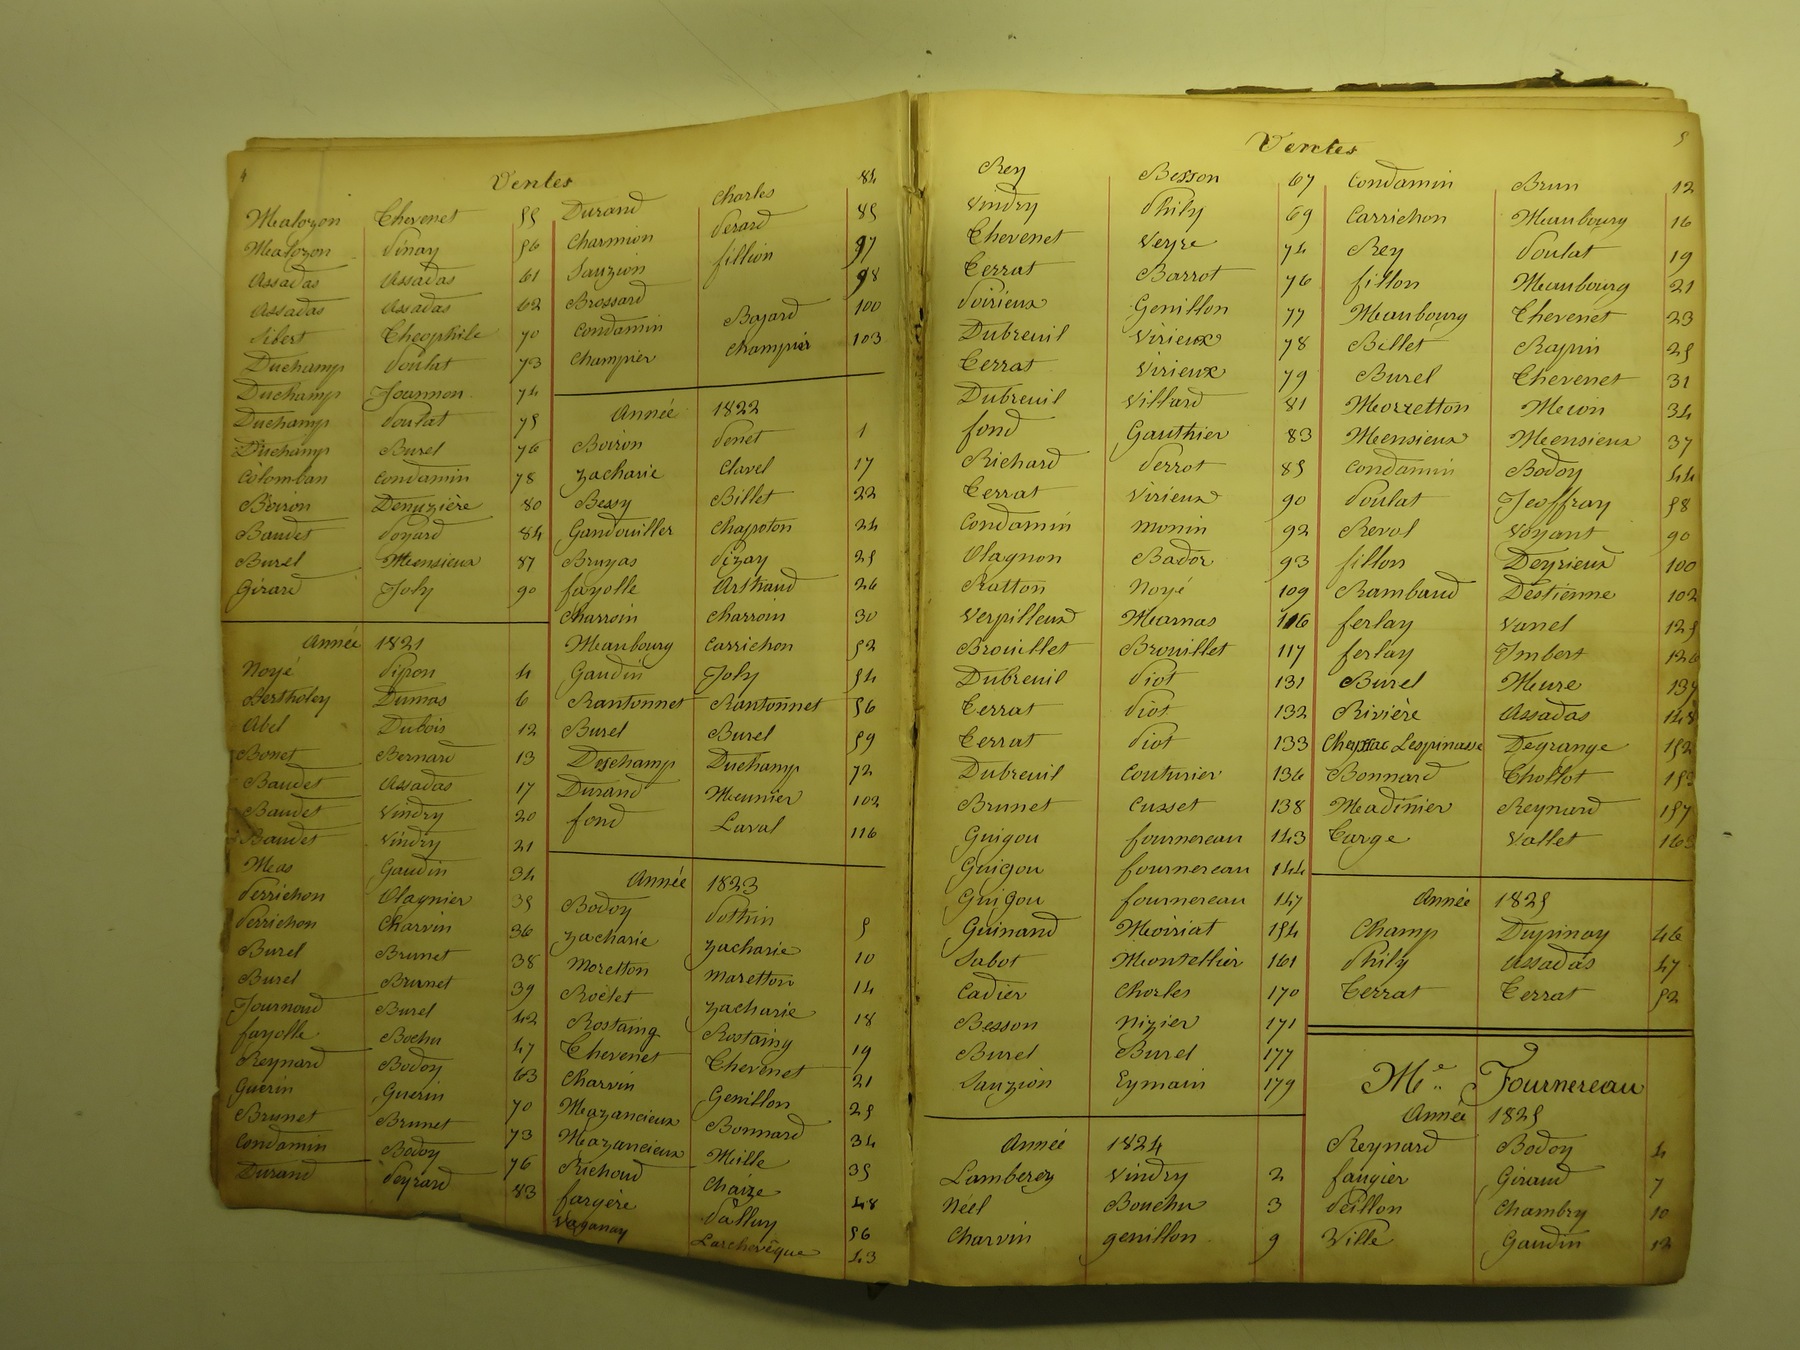 4
Ventes
Mealozon Chevenet 55
Mealozon Vinay 56
Assadas Assadas 61
Assadas Assadas 62
Sibert Théophile 70
Duchamp Poulat 73
Duchamp Joannon 74
Duchamp Poulat 75
Duchamp Burel 76
Colomban Condamin 78
Boiron Denuzière 80
Baudet Poyard 84
Burel Mensieux 87
Girard Joly 90
Année 1821
Noyé Pipon 4
Bertholey Dumas 6
Abel Dubois 12
Bonet Bernard 13
Baudet Assadas 17
Baudet Vindry 20
Baudet Vindry 21
Meas Gaudin 34
Perrichon Olagnier 35
Perrichon Charvin 36
Burel Brunet 38
Burel Brunet 39
Journoud Burel 42
fayolle Bochu 47
Reynard Bodoy 63
Guerin Guerin 70
Brunet Brunet 73
Condamin Bodoy 76
Durand Peyrard 83
Durand Charles 84
Charmion Perard 85
Sauzion fillion 97
Brossard 98
Condamin Bajard 100
Champier Champier 103
Année 1822
Boiron Penet 1
Zacharie Clavel 17
Bessy Billet 22
Gandouiller Chapoton 24
Bruyas Pizay 25
fayolle Arthaud 26
Charroin Charroin 30
Meaubourg Carrichon 52
Gaudin Joly 54
Rantonnet Rantonnet 56
Burel Burel 59
Deschamp Duchamp 72
Durand Meunier 102
fond Laval 116
Année 1823
Bodoy Pothin 5
Zacharie Zacharie 10
Moretton Maretton 14
Roëlet Zacharie 18
Rostaing Rostaing 19
Chevenet Chevenet 21
Charvin Genillon 25
Mazancieux Bonnard 34
Mazancieux Mille 35
Richoud Chaize 48
fargère Palluy 56
Vaganay Larchevêque 43
5
Ventes
Rey Besson 67
Vindry Phily 69
Chevenet Veyre 74
Terrat Barrot 76
Poirieux Genillon 77
Dubreuil Virieux 78
Terrat Virieux 79
Dubreuil Villard 81
fond Gauthier 83
Richard Perrot 85
Terrat Virieux 90
Condamin monin 92
Olagnon Bador 93
Ratton Noyé 109
Verpilleux Mearnas 116
Brouillet Brouillet 117
Dubreuil Piot 131
Terrat Piot 132
Terrat Piot 133
Dubreuil Couturier 136
Brunet Cusset 138
Guigou fournereau 143
Guigou fournereau 144
Guigou fournereau 147
Guinand Moiriat 154
Sabot Montellier 161
Cadier Charles 170
Besson Nizier 171
Burel Burel 177
Sauzion Eymain 179
Année 1824
Lamberey Vindry 2
Néel Bouchu 3
Charvin genillon 9
Condamin Brun 12
Carrichon Meaubourg 16
Rey Poulat 19
fillon Meaubourg 21
Meaubourg Chevenet 23
Billet Rapin 25
Burel Chevenet 31
Morretton Mecon 34
Mensieux Mensieux 37
Condamin Bodoy 44
Poulat Jeoffray 58
Revol Voyant 90
fillon Deyrieux 100
Rambaud Destienne 102
ferlay Vanel 125
ferlay Imbert 126
Burel Meure 137
Rivière Assadas 148
Lespinasse Degrange 152
Bonnard Chollot 155
Madinier Reynard 157
Targe Vallet 163
Année 1825
Champ Dupinay 46
Phily Assadas 47
Terrat Terrat 52
Me Fournereau
Année 1825
Reynard Bodoy 4
faugier Giraud 7
Peillon Chambry 10
Ville Gaudin 12